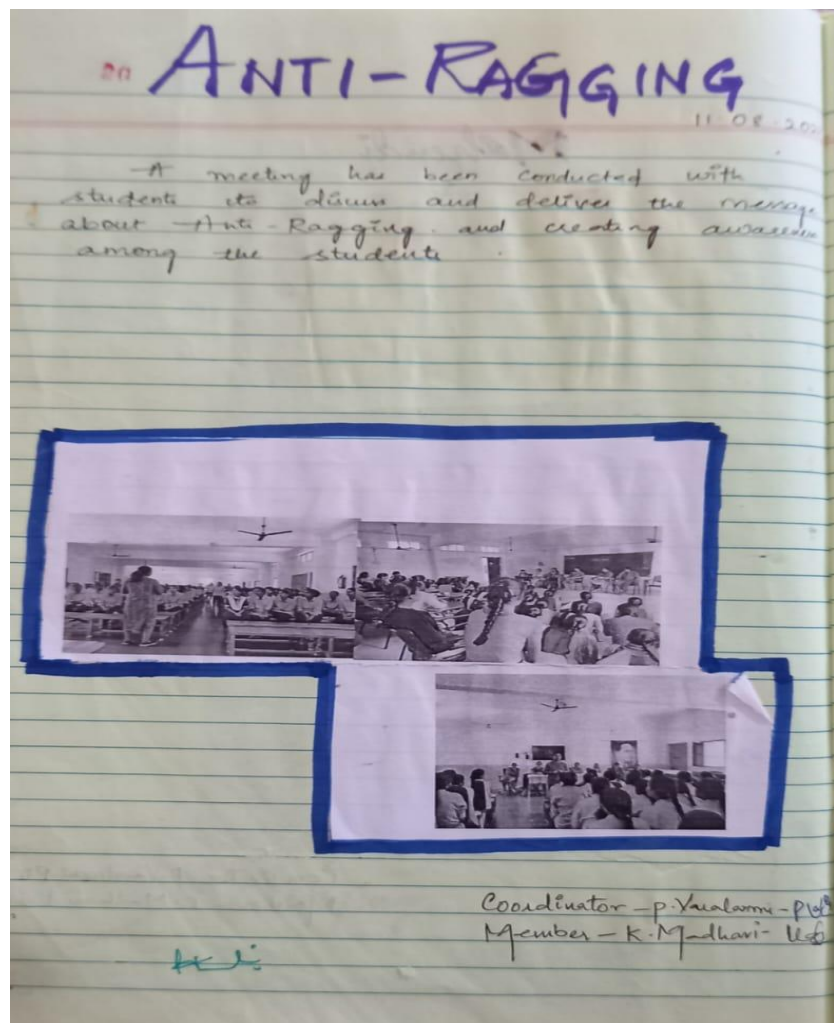 20 ANTI-RAGGING
11.08.202
A meeting has been conducted with
students to and deliver the message
about Anti-Ragging. and creating
among the students.
Coordinator - P.
Member - K. Madhavi -